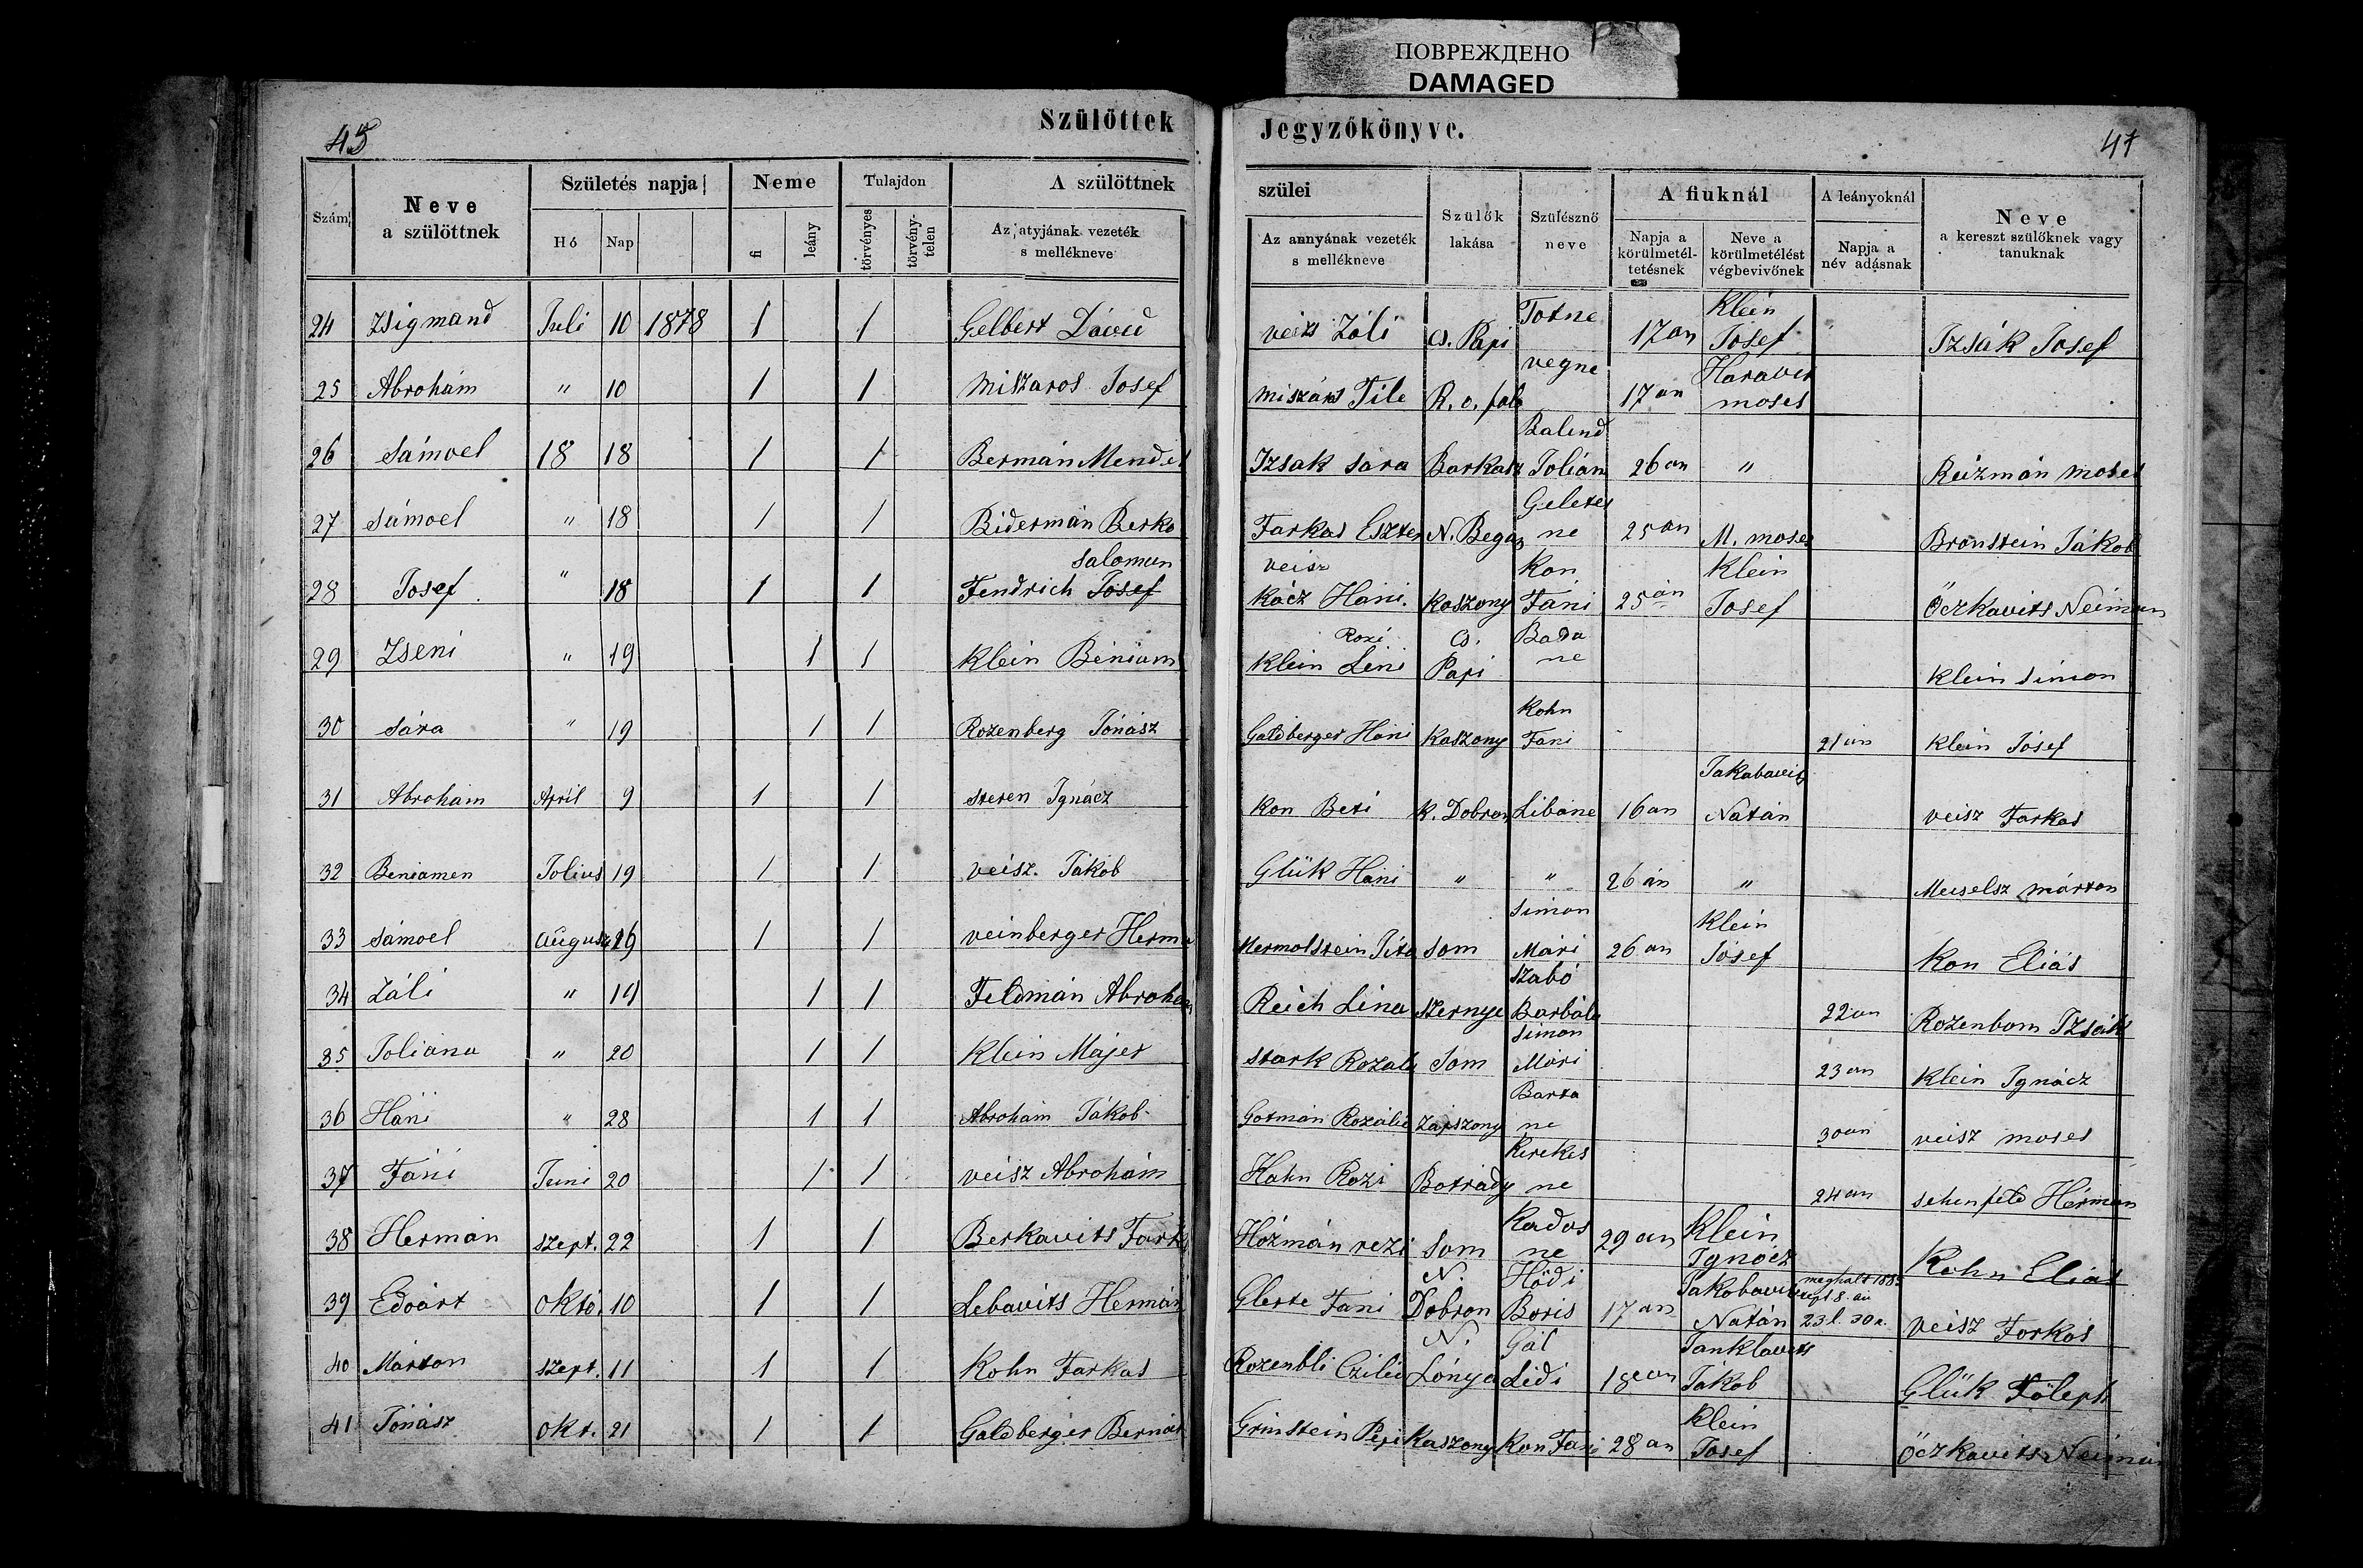 ПОВРЕЖДЕНО
DAMAGED
45
Szülöttek
Jegyzőkönyve.
41
Szám
Neve a szülöttnek
Születés napja
Hó
Nap
Neme
fi
leány
Tulajdon
törvényes
törvény-telen
A szülöttnek
Az atyjának vezeték s mellékneve
szülei
Az annyának vezeték s mellékneve
Szülők lakása
Szülésznő neve
A fiuknál
Napja a körülmetél-tetésnek
Neve a körülmetélést végbevivőnek
A leányoknál
Napja a név adásnak
Neve
a kereszt szülőknek vagy tanuknak
24 Zsigmand Juli 10 1878 1 1 Gelbert Dávid veisz Záli Cs. Papi Totne 17 an Klein Josef Izsák Josef
25 Abrohám " 10 1 1 Miszaros Josef Miszáros Tile R. o. falu vegne 17 an moses
26 Sámoel 18 18 1 1 Bermán Mendel Izsak Sara Barkasz Balind Jolián 26 an " Reizmán moses
27 Sámoel " 18 1 1 Bidermán Berko Farkas Eszter N. Begany Geletes ne 25 an M. moses Bronstein Jákob
28 Josef " 18 1 1 Fendrich Josef Salomun veisz Kácz Háni. Kaszony Kon Fáni 25 án Klein Josef Öczkavits Neiman
29 Zseni " 19 1 1 Klein Beniam Klein Léni Rozi Cs. Papi Bada ne Klein Simon
30 Sára " 19 1 1 Rozenberg Jónász Galdberger Háni Kaszony Kohn Fani 21 an Klein Jósef
31 Abrohám April 9 1 1 Steren Ignácz Kon Beti K. Dobron Libáne 16 an Jakabavits Natán veisz Farkas
32 Beniamen Jolius 19 1 1 veisz. Jákob Glük Háni " " 26 án " Meiselsz márton
33 Sámoel August 19 1 1 veinberger Herma Mermolstein Pita Som Simon Mári 26 an Klein Jósef Kon Eliás
34 Záli " 19 1 1 Feldmán Abrohám Reich Lina Szernye Szabó Barbála 22 an Rozenbom Izsák
35 Joliána " 20 1 1 Klein Majer Stark Rozali Som Simon Mari 23 an Klein Ignácz
36 Háni " 28 1 1 Abrohám Jákob Gotmán Rozália Zápszony Barta ne 30 an veisz moses
37 Fáni Juni 20 1 1 veisz Abrohám Kahn Rozi Botrády Kerekes ne 24 an Schenfeld Hérmán
38 Hermán Szept. 22 1 1 Berkavits Farkas Hózmán rezi Som Kados ne 29 an Klein Ignácz Kohn Eliás
39 Edoárt Októ. 10 1 1 Lebavits Hermán Glerte Fani N. Dobron Hódi Boris 17 an Jakobavits Natán meghalt 188 szept 8. án 23 l. 30 k. veisz Forkas
40 Márton Szept. 11 1 1 Kohn Farkas Rozenbli Czilia N. Lónya Gál Lidi 18 an Janklavits Jákob Glük Fölept
41 Jónász Okt. 21 1 1 Galdberger Bernát Grinstein Pepi Kaszony Kon Fani 28 an Klein Josef Öczkavits Neiman